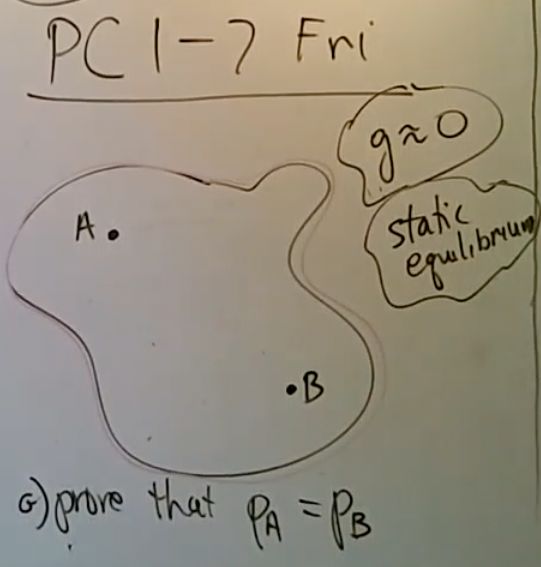 PC 1-7 Fri
g≈0
static
equilibrium
A
B
G) prove that PA = PB